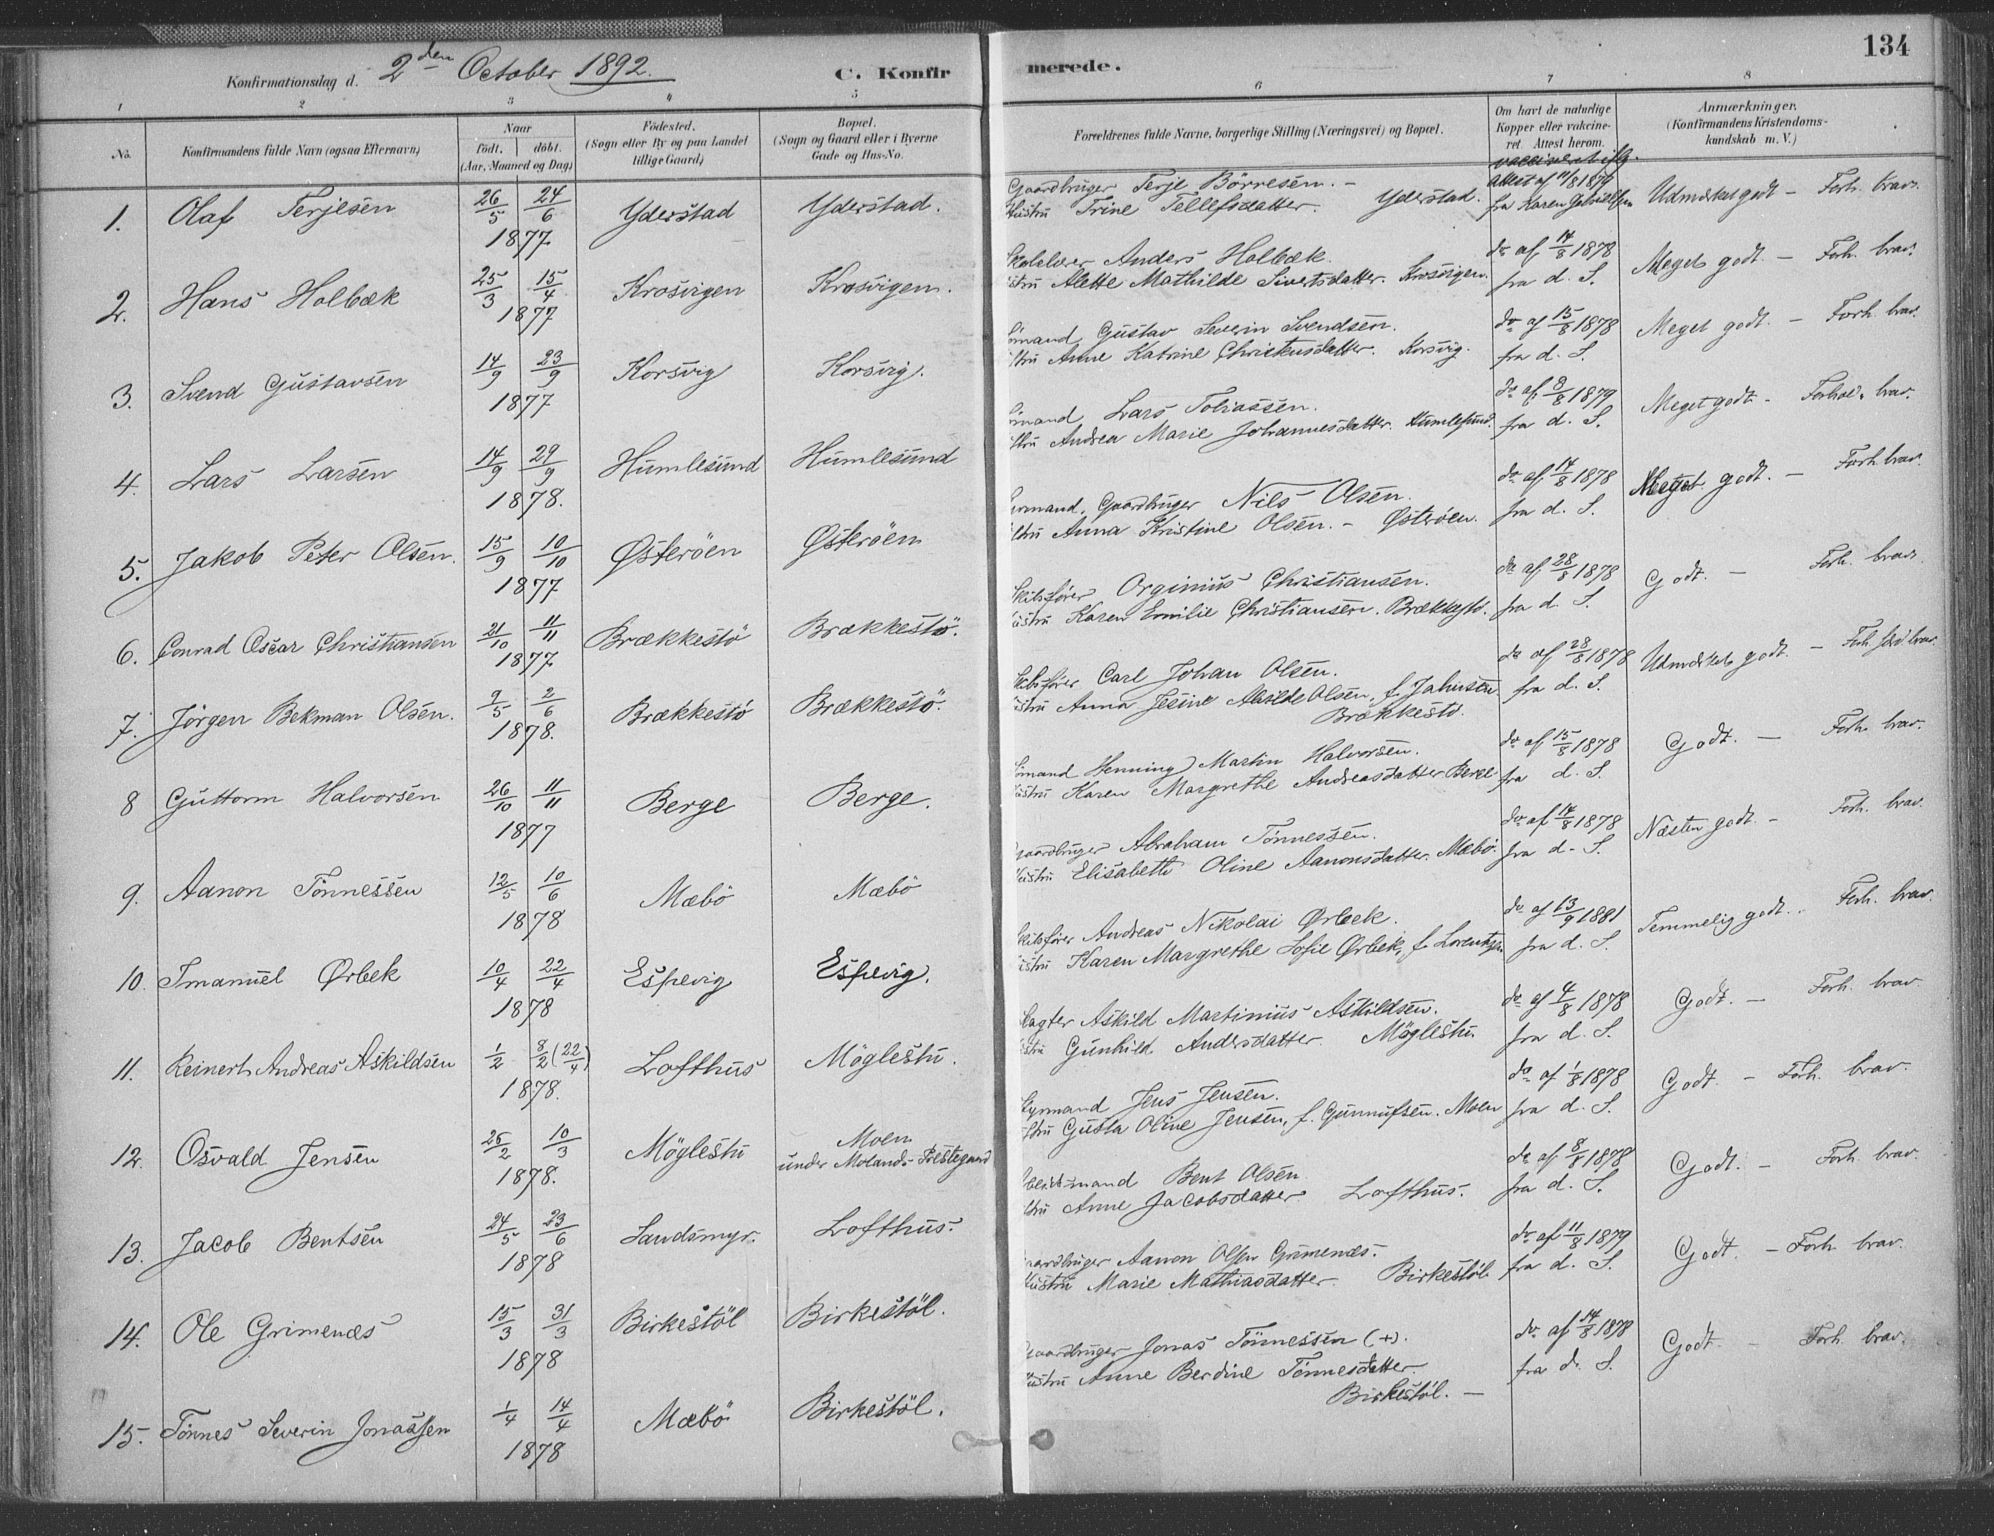 134
Konfirmationsdag d. 2den October 1892.
C. Konfirmerede.
1 2 3 4 5 6 7 8
No.
Konfirmandens fulde Navn (ogsaa Efternavn)
Naar
født. døbt.
(Aar, Maaned og Dag)
Fødested.
(Sogn eller By og paa Landet
tillige Gaard)
Bopæl.
(Sogn og Gaard eller i Byerne
Gade og Hus-No.
Forældrenes fulde Navne, borgerlige Stilling (Næringsvei) og Bopæl.
Om havt de naturlige
Kopper eller vakcine-
ret. Attest herom.
Anmærkninger.
(Konfirmandens Kristendoms-
kundskab m. V.)
1. Olaf Terjesen 26/5 24/6 1877 Yderstad Yderstad.
Gaardbruger Terje Börresen. –
Hustru Trine Tellefsdatter. Yderstad.
vaccineret iflg.
Attest af 11/8 1879
fra Karen
Udmærket godt – Forh. brav.
2. Hans Holbæk 25/3 15/4 1877 Krosvigen Krosvigen.
Skolelærer Anders Holbæk.
Hustru Alette Mathilde Sivertsdatter. Krosvigen.
do af 14/8 1878
fra d. S.
Meget godt – Forh. brav.
3. Svend Gustavsen 14/9 23/9 1877 Korsvig Korsvig.
Sömand Gustav Severin Svendsen.
Hustru Anne Katrine Christensdatter. Korsvig.
do af 15/8 1878
fra d. S.
Meget godt. – Forh. brav.
4. Lars Larsen 14/9 29/9 1878. Humlesund Humlesund
Sömand Lars Tobiassen.
Hustru Andrea Marie Johannesdatter. Humlesund.
do af 8/8 1879
fra d. S.
Meget godt – Forhol. brav.
5. Jakob Peter Olsen. 15/9 10/10 1877 Østeröen Østeröen
Gaardbruger Nils Olsen.
Hustru Anna Kristine Olsen. – Østeröen.
do af 14/8 1878
fra d. S.
Meget godt. – Forh. brav.
6. Conrad Oscar Christiansen 21/10 11/11 1877 Brækkestö Brækkestö.
Skibsfører Orginius Christiansen.
Hustru Karen Emilie Christiansen. Brækkestö.
do af 28/8 1878
fra d. S.
Godt. – Forh. brav
7. Jörgen Bekman Olsen. 9/5 2/6 1878. Brækkestö Brækkestö.
Skibsfører Carl Johan Olsen.
Hustru Anna Jesine Olsen, f. Jahnsen
Brækkestö.
do af 28/8 1878
fra d. S.
Udmærket godt. – Forh. brav.
8 Guttorm Halvorsen 26/10 11/11 1877 Berge Berge.
Sömand Henning Martin Halvorsen.
Hustru Karen Margrethe Andreasdatter Berge
do af 15/8 1878
fra d. S.
Godt. – Forh. brav.
9. Aanon Tönnessen 12/5 10/6 1878 Mæbö Mæbö
Gaardbruger Abraham Tönnessen.
Hustru Elisabeth Oline Aanonsdatter. Mæbö.
do af 14/8 1878
fra d. S.
Næsten godt. – Forh. brav.
10. Imanuel Ørbek 10/4 22/4 1878 Espevig Espevig.
Skibsfører Andreas Nikolai Ørbek.
Hustru Karen Margrethe Sofie Ørbek, f. Lorentzen
do af 13/9 1881
fra d. S.
Temmelig godt. Forh. brav.
11. Reinert Andreas Askildsen 1/2 8/2 (22/4) 1878. Lofthus Möglestu.
Slagter Askild Martinius Askildsen.
Hustru Gunhild Andersdatter Möglestu
do af 4/8 1878
fra d. S.
Godt. – Forh. brav.
12. Osvald Jensen 25/2 10/3 1878. Möglestu Moen
under Molands Prestegaard
Jens Jensen.
Hustru Gusta Oline Jensen, f. Gunnufsen. Moen
do af 1/8 1878
fra d. S.
Godt. – Forh. brav.
13. Jacob Bentsen 24/5 23/6 1878 Sandsmyr. Lofthus.
Arbeidsmand Bent Olsen
Hustru Anne Jacobsdatter Lofthus.
do af 8/8 1878
fra d. S.
Godt. – Forh. brav.
14. Ole Grimenæs 15/3 31/3 1878 Birkestöl Birkestöl.
Gaardbruger Aanon Olsen Grimenæs.
Hustru Marie Mathiasdatter Birkestöl
do af 11/8 1879
fra d. S.
Godt. – Forh. brav.
15. Tönnes Severin Jonassen 1/4 14/4 1878 Mæbö Birkestöl.
Gaardbruger Jonas Tönnessen (+).
Hustru Anne Berdine Tönnesdatter
Birkestöl. –
do af 14/8 1878
fra d. S.
Godt. – Forh. brav.